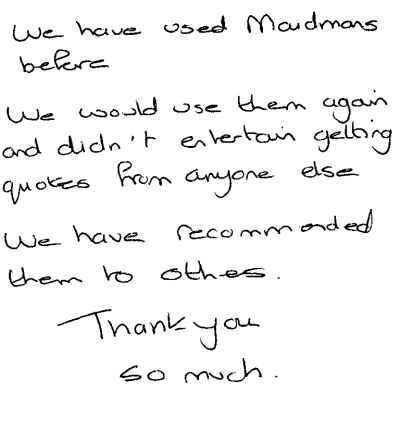 We have used Maidmans
before
We would use them again
and didn't entertain getting
quotes from anyone else
We have recommended
them to others.
Thank you
so much.